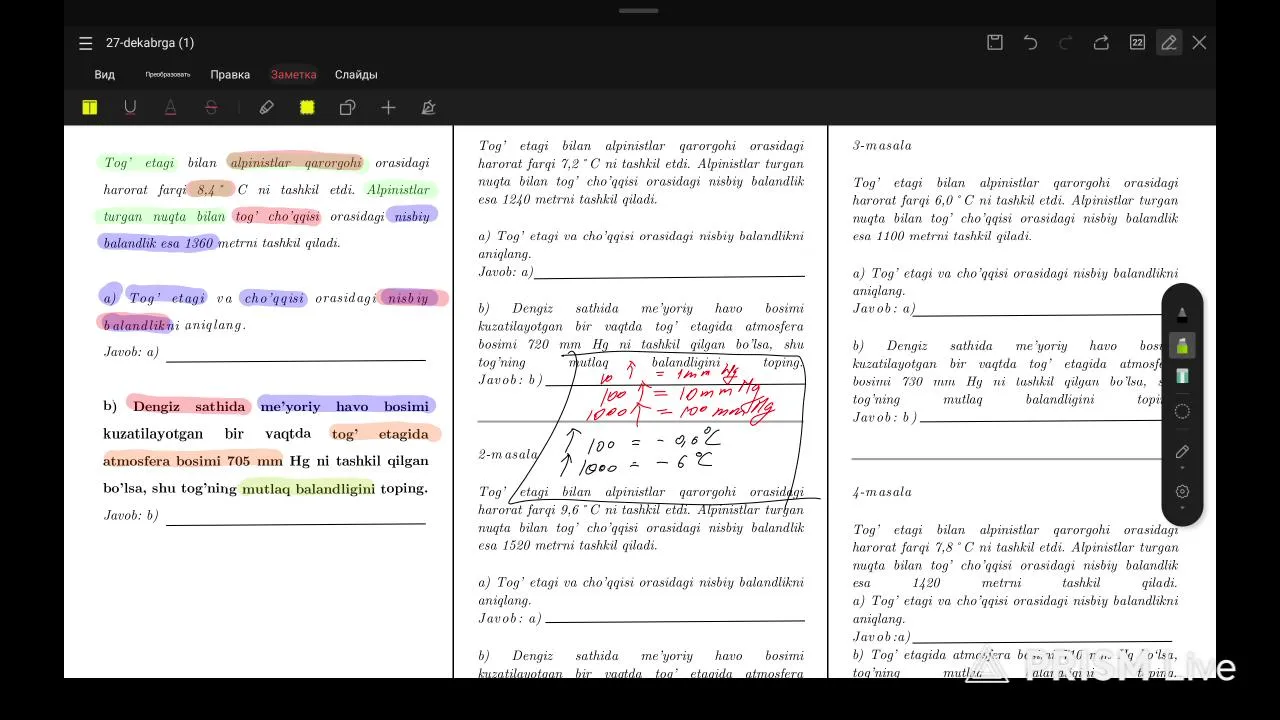 27-dekabrga (1)
22
Вид
Преобразовать
Правка
Заметка
Слайды
Tog' etagi bilan alpinistlar qarorgohi orasidagi
harorat farqi 8,4° C ni tashkil etdi. Alpinistlar
turgan nuqta bilan tog' cho'qqisi orasidagi nisbiy
balandlik esa 1360 metrni tashkil qiladi.
a) Tog' etagi va cho'qqisi orasidagi nisbiy
balandlikni aniqlang.
Javob: a)
b) Dengiz sathida me'yoriy havo bosimi
kuzatilayotgan bir vaqtda tog' etagida
atmosfera bosimi 705 mm Hg ni tashkil qilgan
bo'lsa, shu tog'ning mutlaq balandligini toping.
Javob: b)
Tog' etagi bilan alpinistlar qarorgohi orasidagi
harorat farqi 7,2°C ni tashkil etdi. Alpinistlar turgan
nuqta bilan tog' cho'qqisi orasidagi nisbiy balandlik
esa 1240 metrni tashkil qiladi.
a) Tog' etagi va cho'qqisi orasidagi nisbiy balandlikni
aniqlang.
Javob: a)
b) Dengiz sathida me'yoriy havo bosimi
kuzatilayotgan bir vaqtda tog' etagida atmosfera
bosimi 720 mm Hg ni tashkil qilgan bo'lsa, shu
tog'ning mutlaq balandligini toping.
Javob: b)
10 ↑ = 1mm Hg
100 ↑ = 10mm Hg
1000 ↑ = 100 mm Hg
↑ 100 = - 0,6°C
↑ 1000 = - 6°C
2-masala
Tog' etagi bilan alpinistlar qarorgohi orasidagi
harorat farqi 9,6°C ni tashkil etdi. Alpinistlar turgan
nuqta bilan tog' cho'qqisi orasidagi nisbiy balandlik
esa 1520 metrni tashkil qiladi.
a) Tog' etagi va cho'qqisi orasidagi nisbiy balandlikni
aniqlang.
Javob: a)
b) Dengiz sathida me'yoriy havo bosimi
kuzatilayotgan bir vaqtda tog' etagida atmosfera
3-masala
Tog' etagi bilan alpinistlar qarorgohi orasidagi
harorat farqi 6,0°C ni tashkil etdi. Alpinistlar turgan
nuqta bilan tog' cho'qqisi orasidagi nisbiy balandlik
esa 1100 metrni tashkil qiladi.
a) Tog' etagi va cho'qqisi orasidagi nisbiy balandlikni
aniqlang.
Javob: a)
b) Dengiz sathida me'yoriy havo
kuzatilayotgan bir vaqtda tog' etagida
bosimi 730 mm Hg ni tashkil qilgan bo'lsa,
tog'ning mutlaq balandligini
Javob: b)
4-masala
Tog' etagi bilan alpinistlar qarorgohi orasidagi
harorat farqi 7,8°C ni tashkil etdi. Alpinistlar turgan
nuqta bilan tog' cho'qqisi orasidagi nisbiy balandlik
esa 1420 metrni tashkil qiladi.
a) Tog' etagi va cho'qqisi orasidagi nisbiy balandlikni
aniqlang.
Javob:a)
b) Tog' etagida atmosfera Hg bo'lsa,
tog'ning mutlaq balandligini toping.
PRISM Live